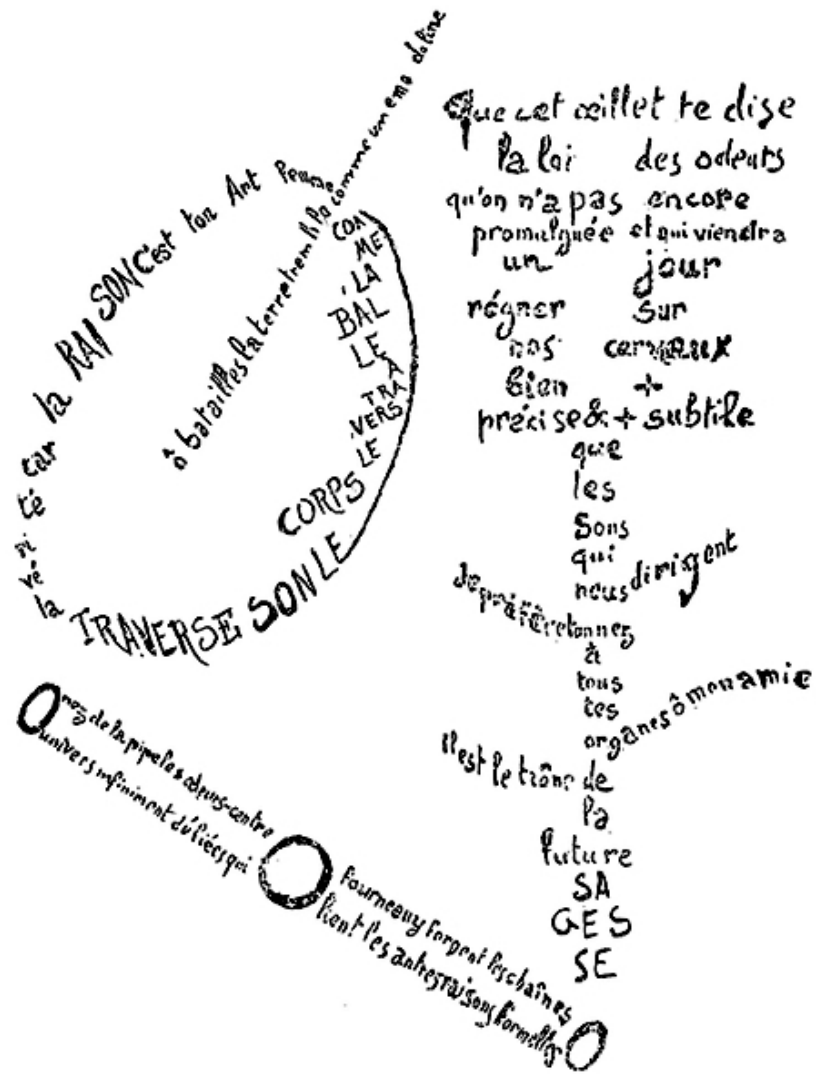 ô batailles la terre tremble comme une mandoline
COMME
LA
BAL
LE
À
TRA
VERS
LE
CORPS
LE SON TRAVERSE
la
vé
ri
té
car
la RAISON C'est ton Art Femme
Que cet œillet te dise
la loi des odeurs
qu'on n'a pas encore
promulguée et qui viendra
un jour
régner sur
nos cerveaux
bien +
précise & + subtile
que
les
sons
qui
nous dirigent
Je préfère ton nez
à
tous
tes
organes ô mon amie
Il est le trône de
la
future
SA
GES
SE
O nez de la pipe les odeurs-centre O fourneau y forgent les chaînes O
univers infiniment déliées qui lient les autres raisons formelles